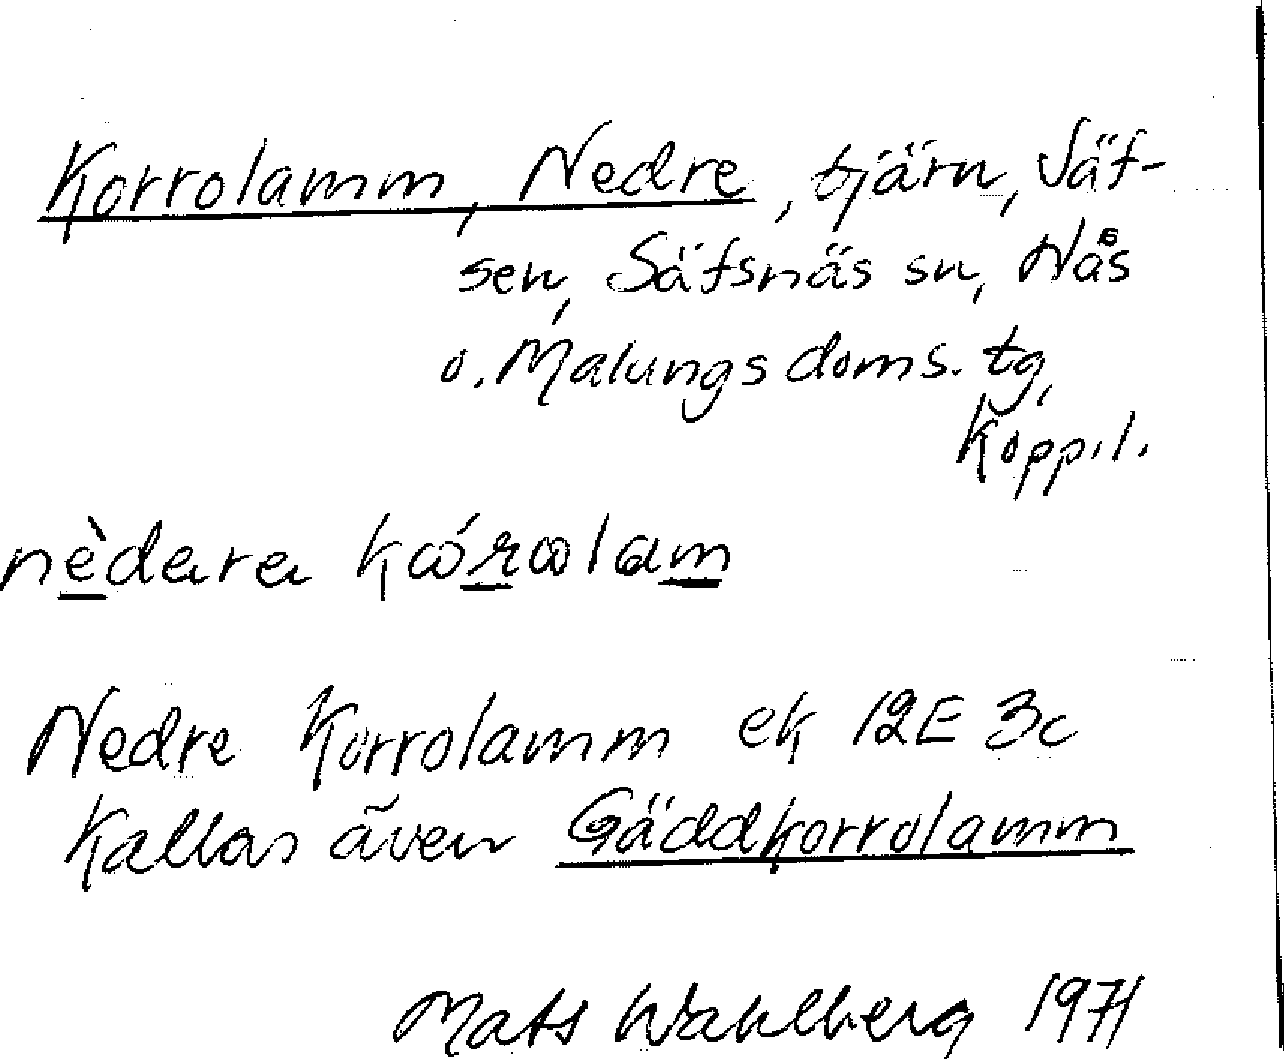 Korrolamm, Nedre, tjärn, Säf-
sen, Säfsnäs sn, Nås
o. Malungs doms. tg,
Kopp. l.
nèdara kωŕωlam
Nedre Korrolamm ek 12E 3c
Kallas även Gäddkorrolamm
Mats Wahlberg 1971